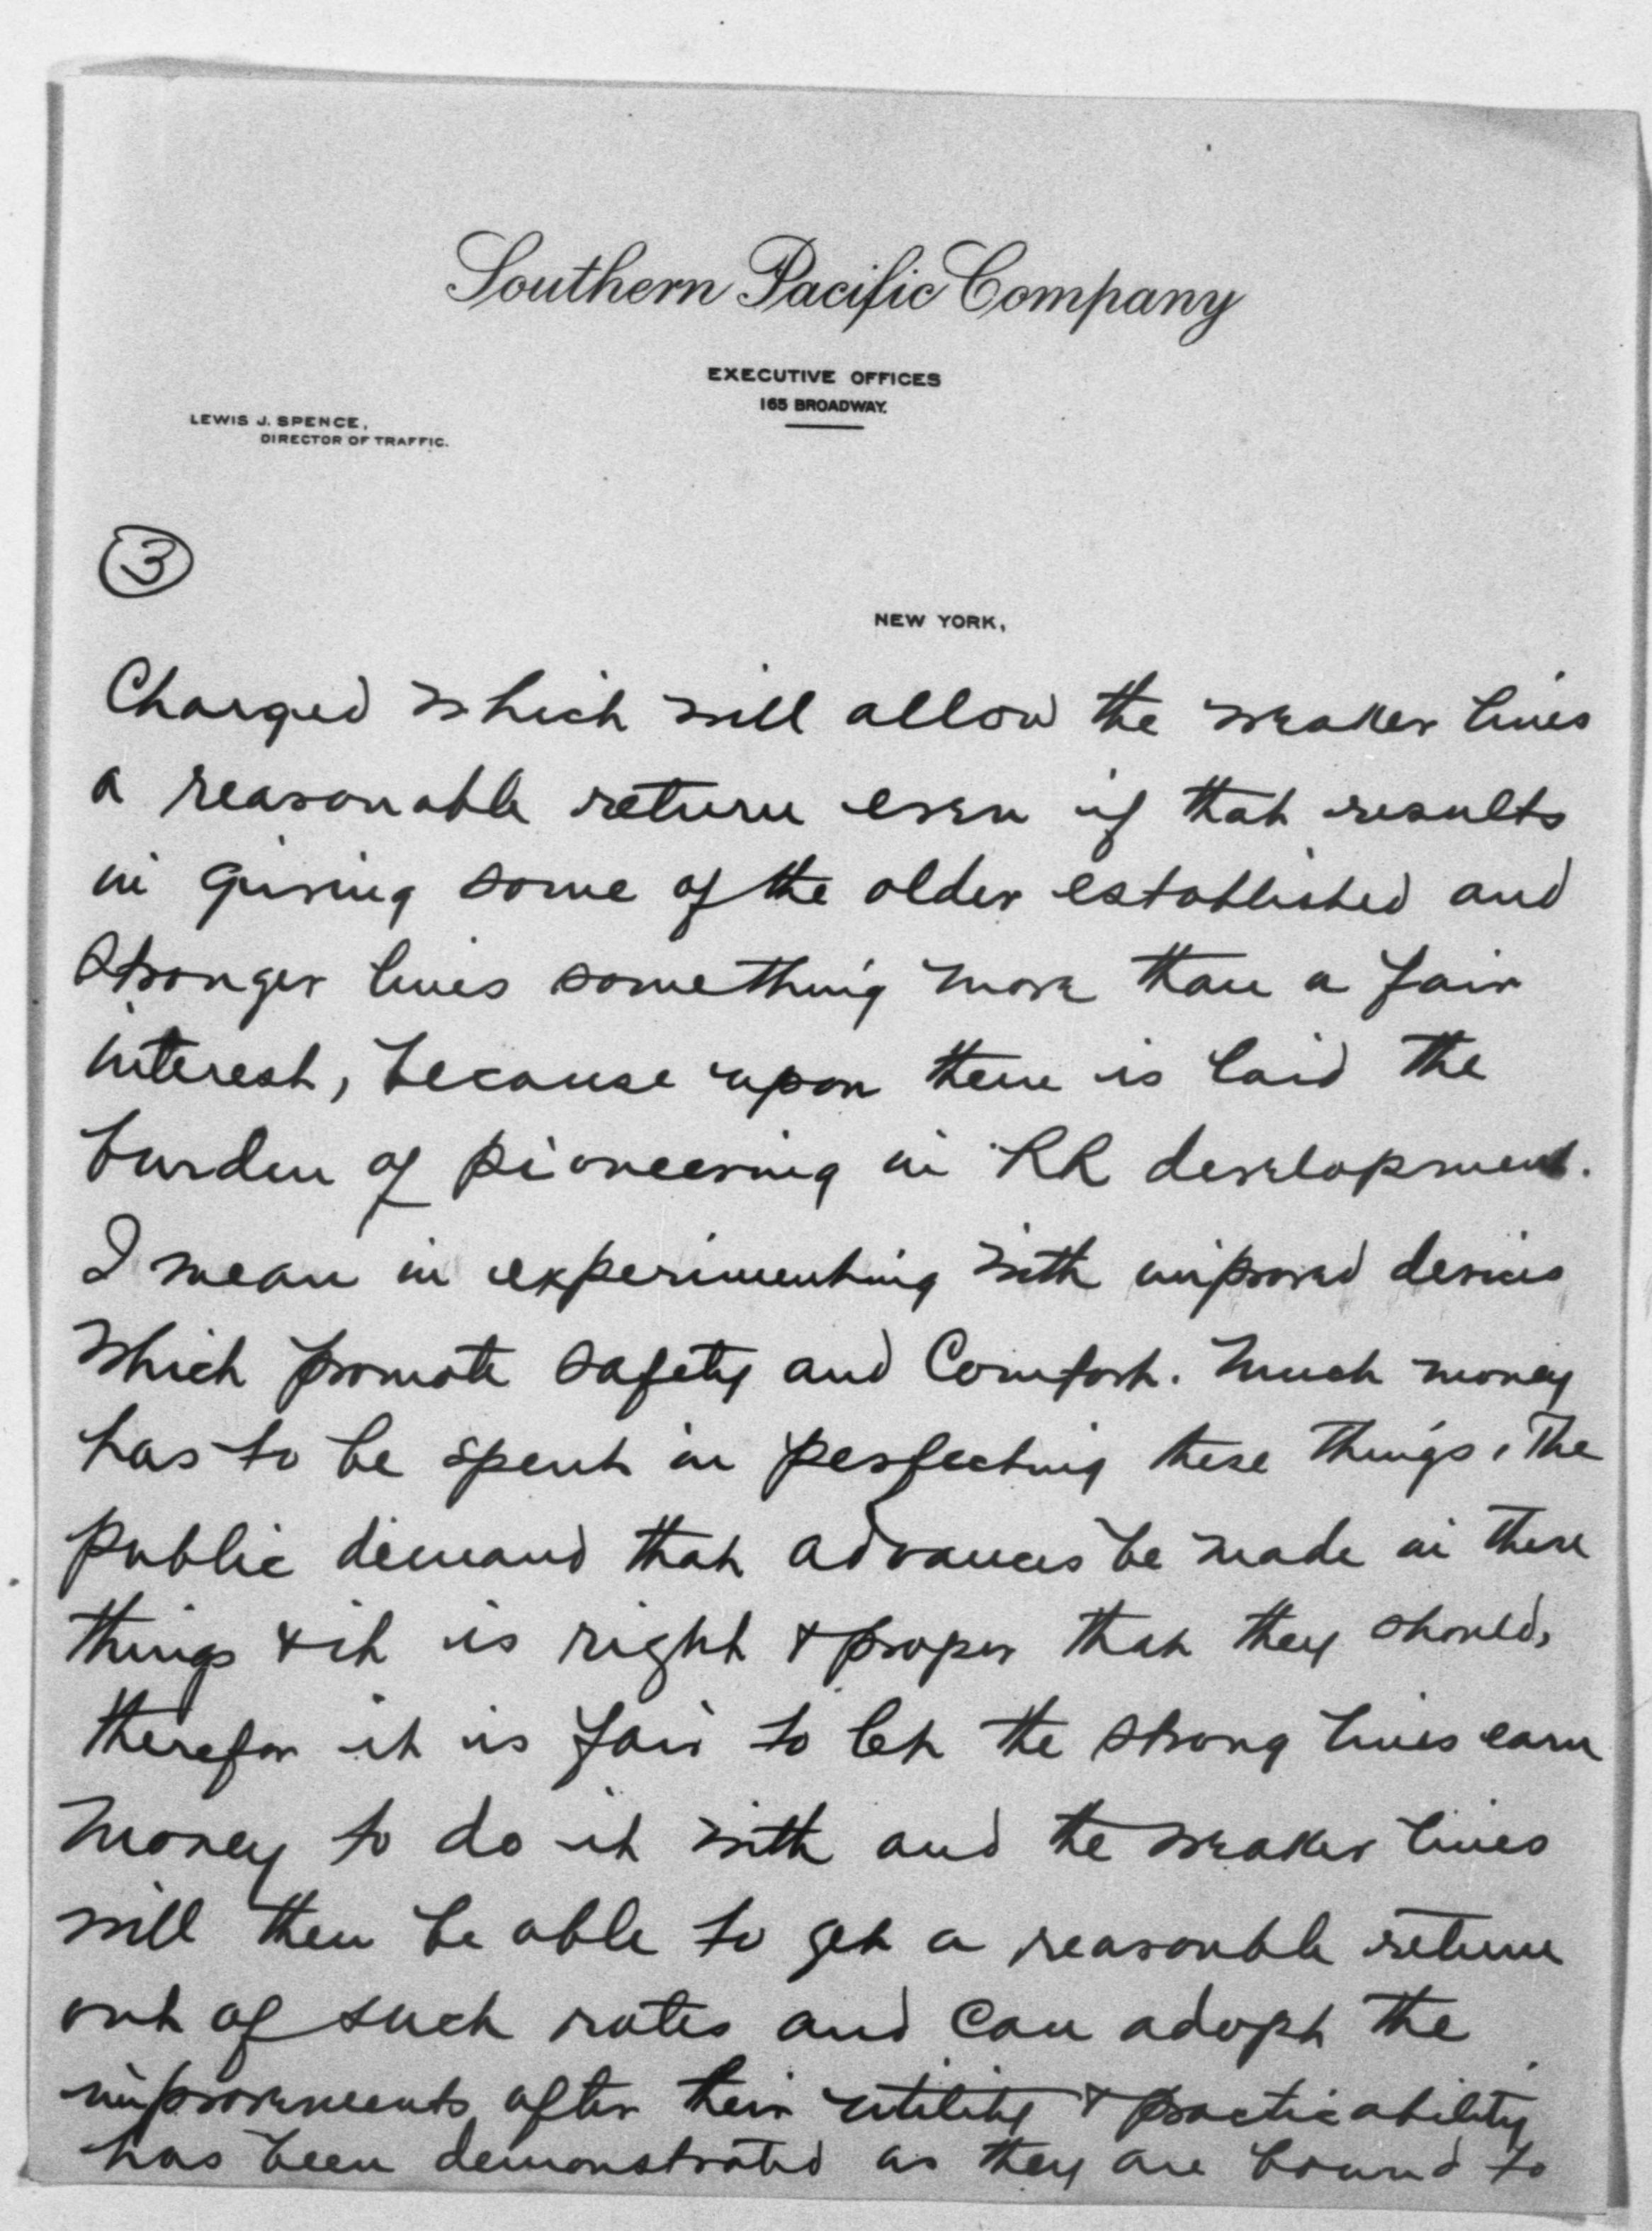 Southern Pacific Company
EXECUTIVE OFFICES
165 BROADWAY.
LEWIS J. SPENCE,
DIRECTOR OF TRAFFIC.
3
NEW YORK,
Charged which will allow the weaker lines
a reasonable return even if that results
in giving some of the older established and
stronger lines something more than a fair
interest, because upon them is laid the
burden of pioneering in RR development.
I mean in experimenting with improved devices
which promote safety and Comfort. Much money
has to be spent in perfecting these things. The
public demand that advances be made in these
things & it is right & proper that they should,
therefor it is fair to let the strong lines earn
money to do it with and the weaker lines
will then be able to get a reasonable return
out of such rates and can adopt the
improvements after their utility & practicability
has been demonstrated as they are bound to